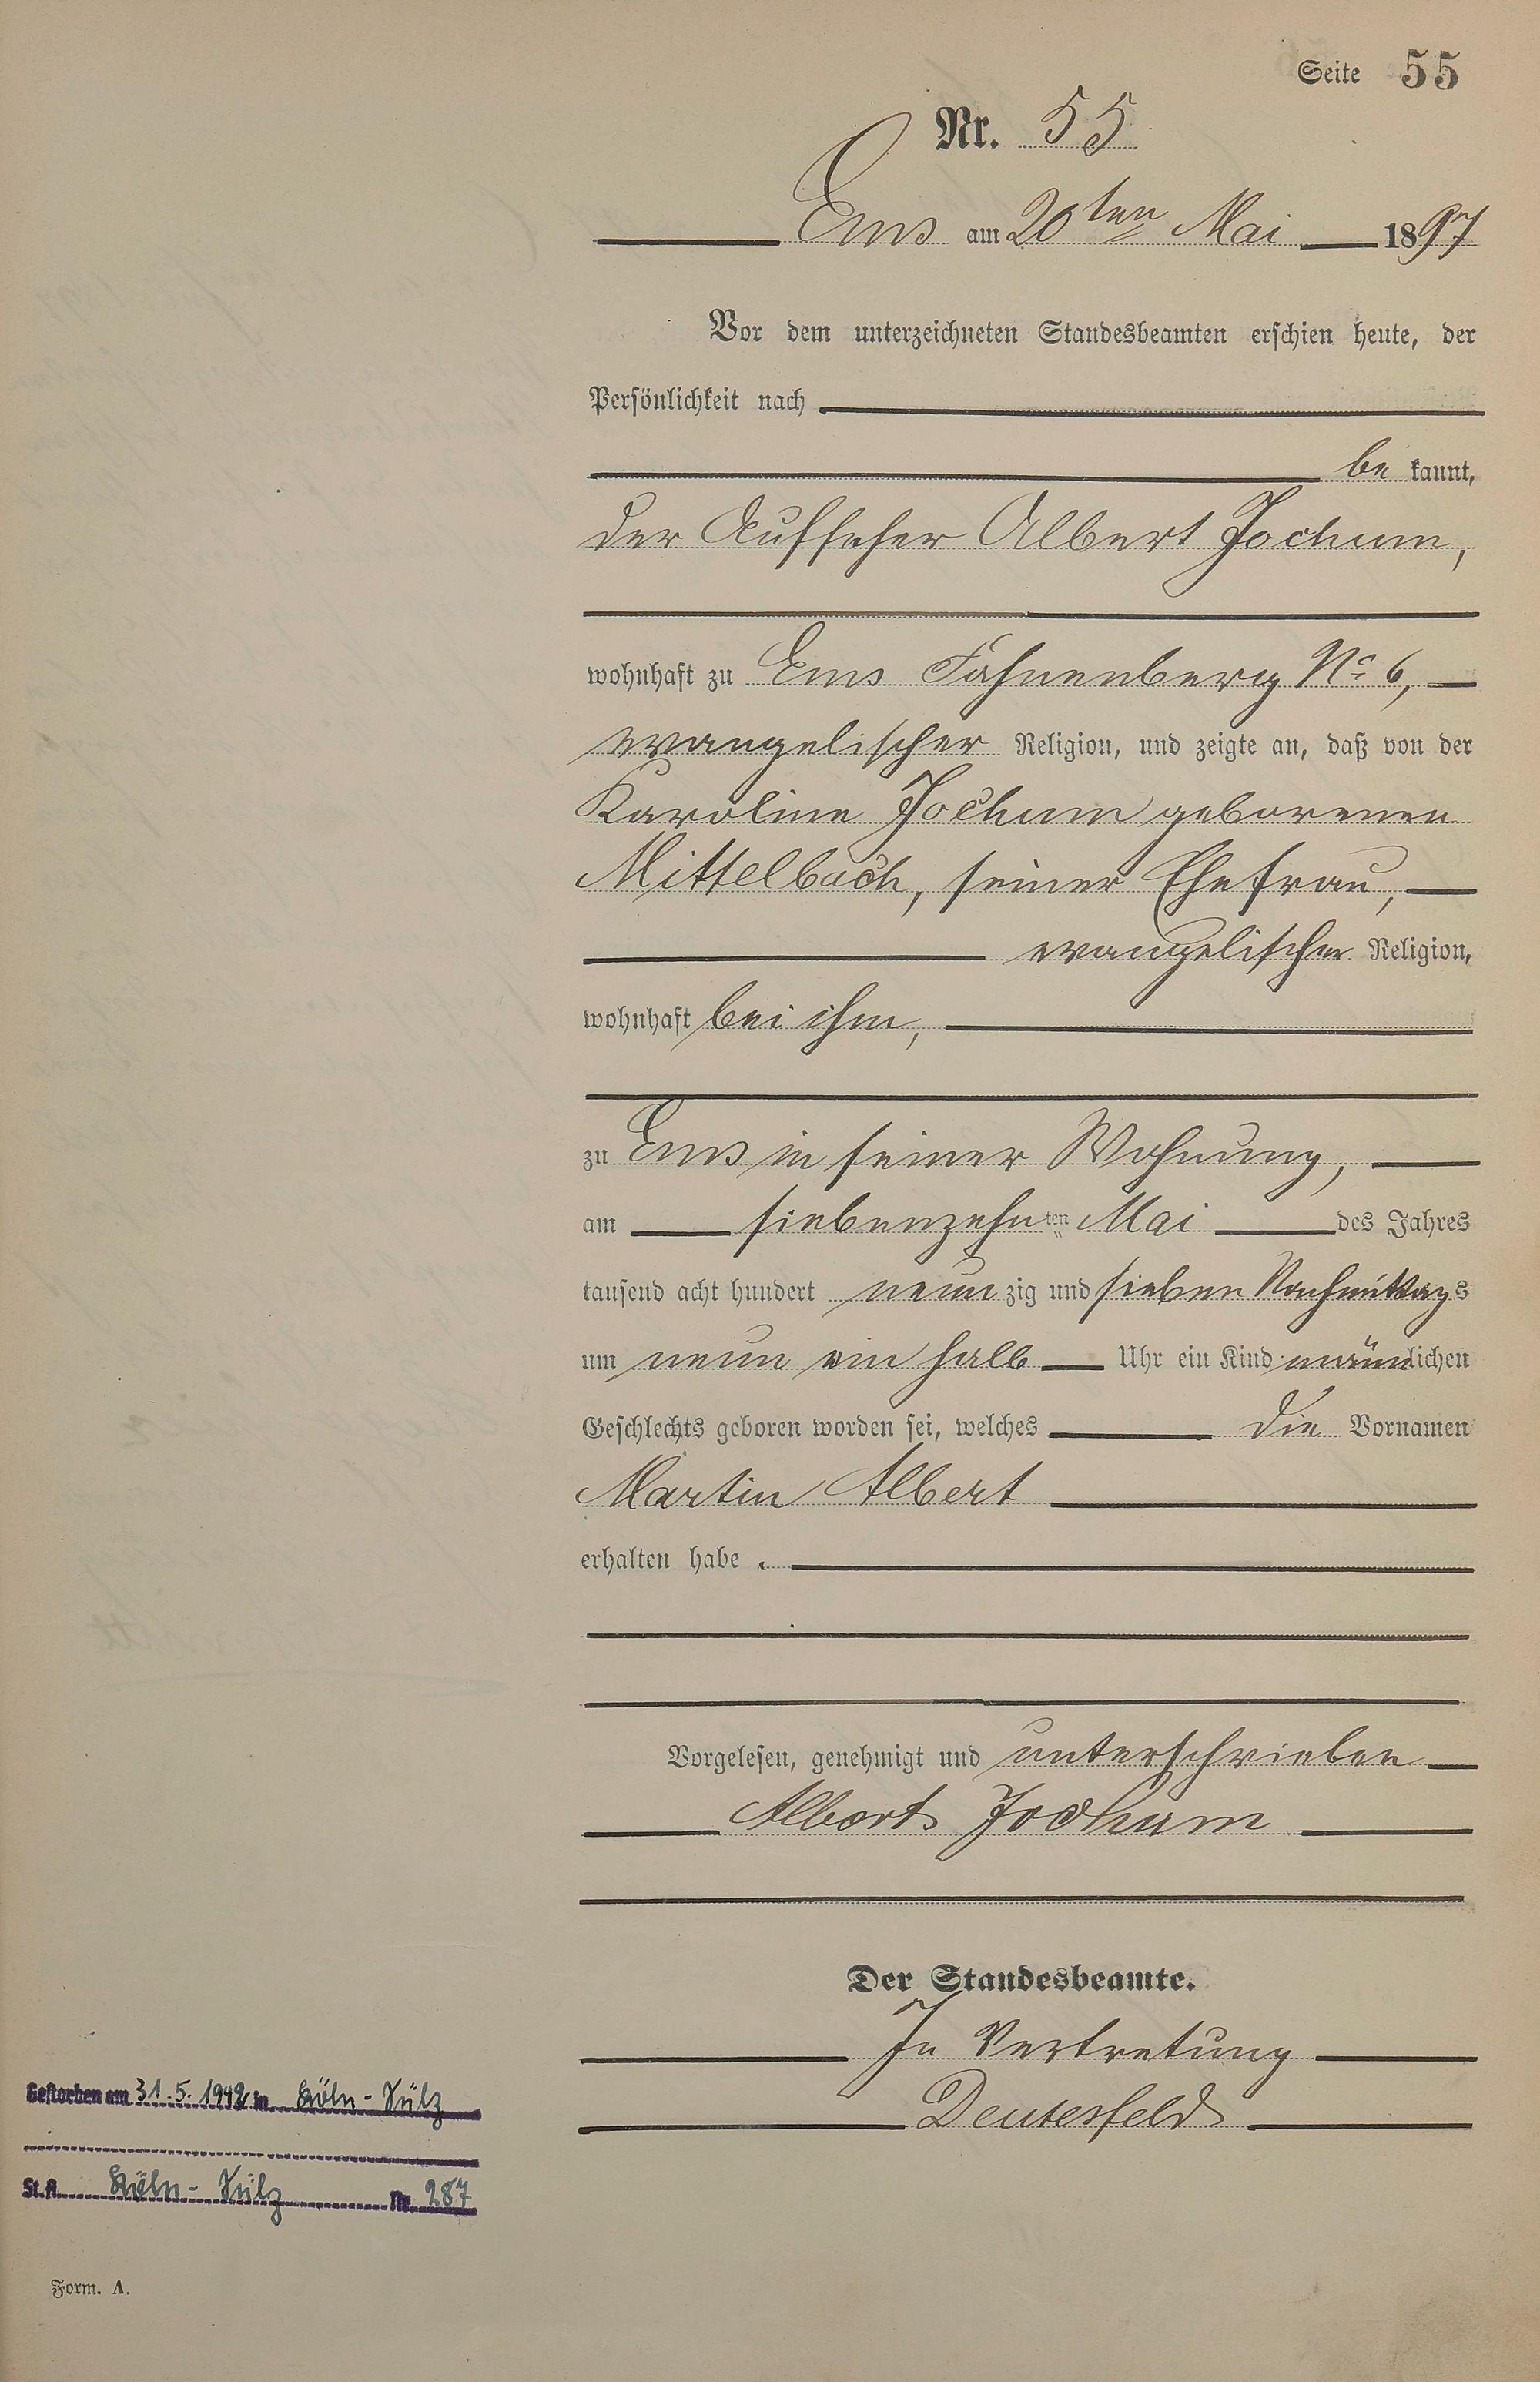 Seite 55
Nr. 55
Ems am 20ten Mai 1897
Vor dem unterzeichneten Standesbeamten erschien heute, der
Persönlichkeit nach
be kannt,
der Aufseher Albert Jochum,
wohnhaft zu Ems Fahnenberg No 6,
evangelischer Religion, und zeigte an, daß von der
Karoline Jochum geborenen
Mittelbach, seiner Ehefrau,
evangelischer Religion,
wohnhaft bei ihm,
zu Ems in seiner Wohnung,
am siebenzehnten Mai des Jahres
tausend acht hundert neunzig und sieben Nachmittags
um neun ein halb Uhr ein Kind männlichen
Geschlechts geboren worden sei, welches die Vornamen
Martin Albert
erhalten habe.
Vorgelesen, genehmigt und unterschrieben
Albert Jochum
Der Standesbeamte.
In Vertretung
Deutesfeld
Gestorben am 31.5.1942 in Köln-Sülz
St.A. Köln-Sülz Nr. 287
Form. A.